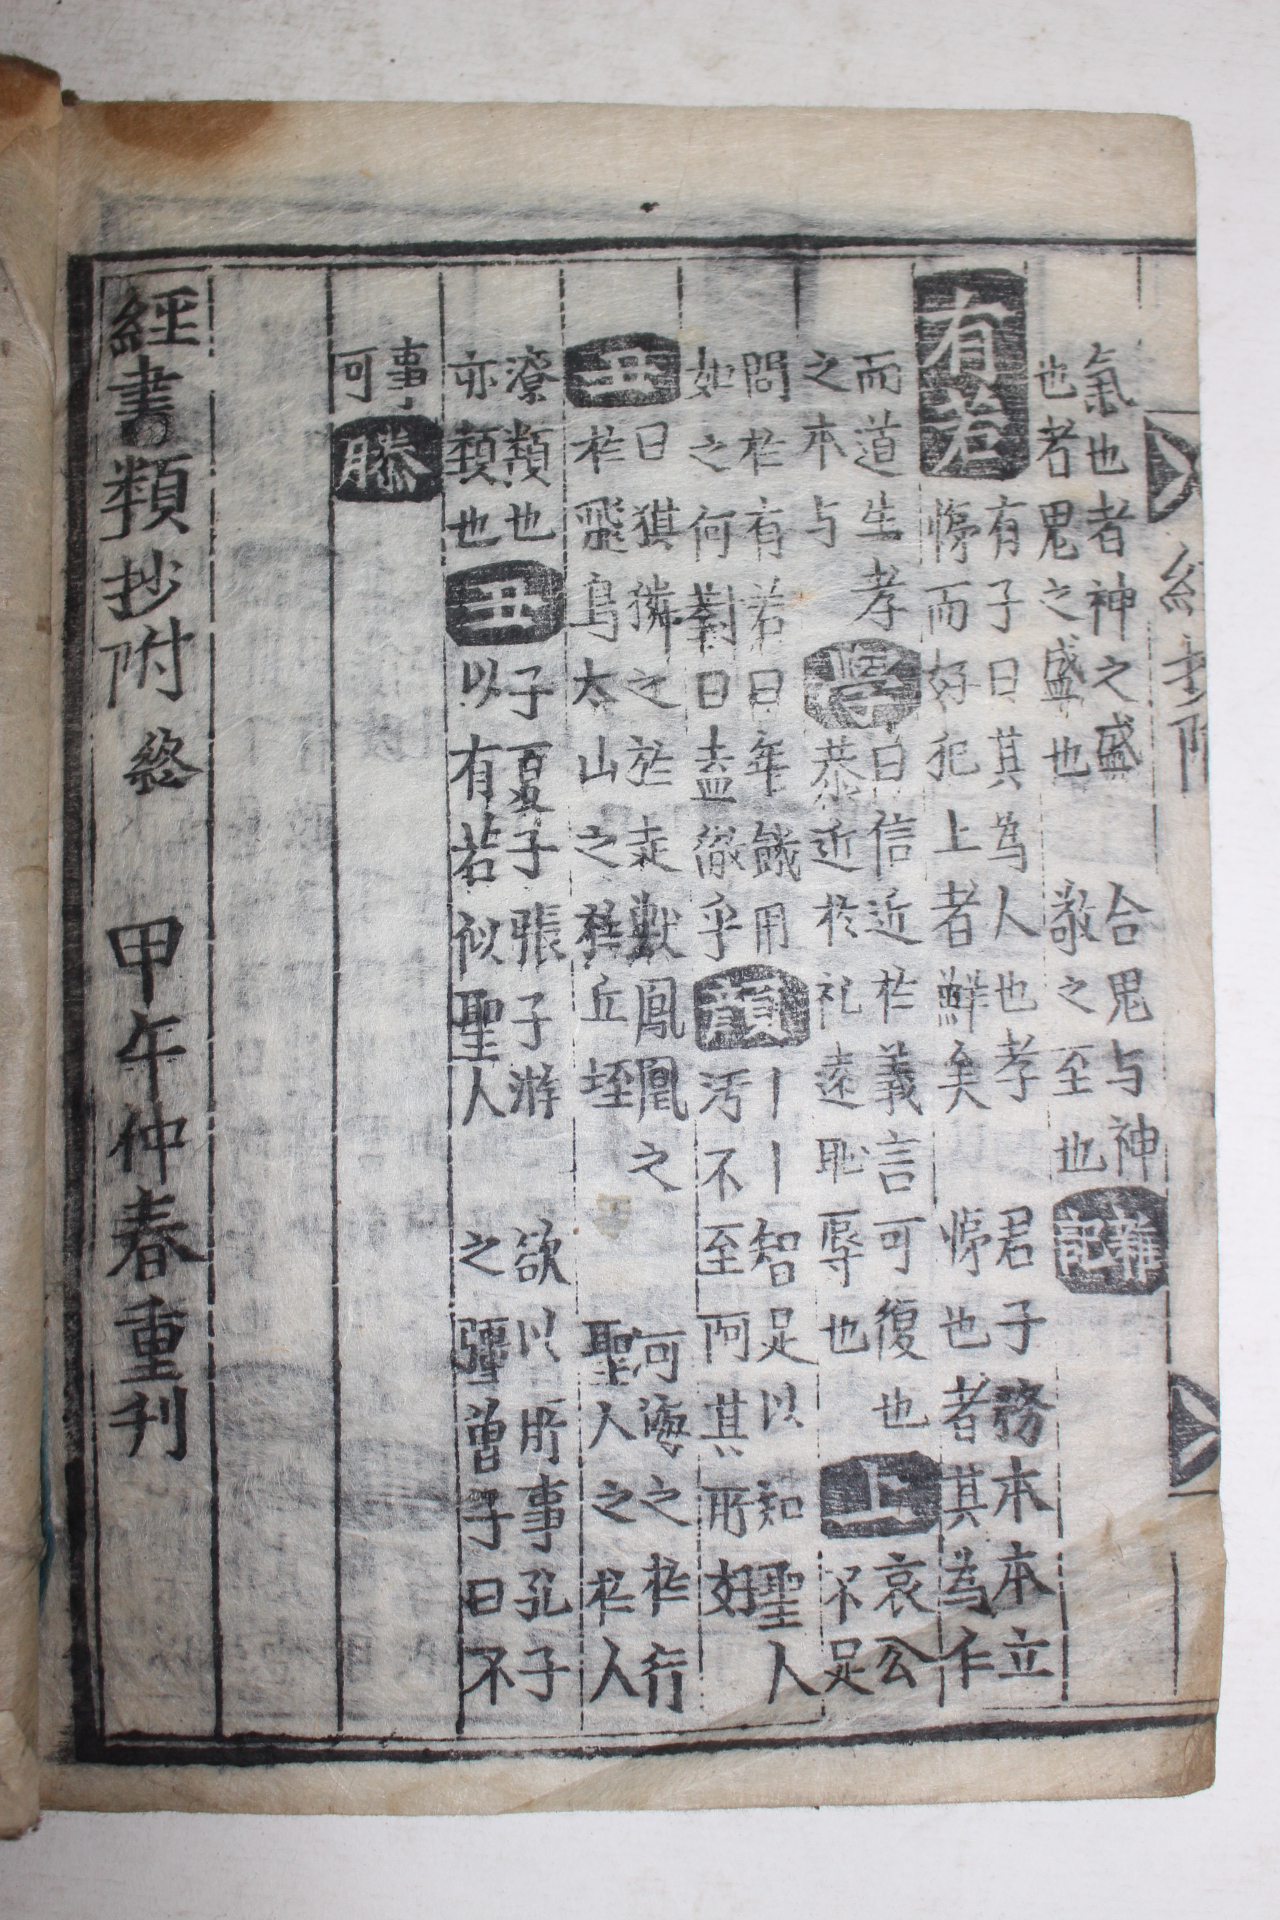 經抄附
氣也者神之盛
也者鬼之盛也
合鬼与神
敬之至也
雜記
有若
有子曰其為人也孝
悌而好犯上者鮮矣
君子務本本立
悌也者其為仁
而道生孝
之本与
學
曰信近於義言可復也
恭近於礼遠恥辱也
上
哀公
不足
問於有若曰年饑用
如之何對曰盍徹乎
顔
丨丨智足以知聖人
汚不至阿其所好
丑
曰猉獜之於走獸鳳凰之
於飛鳥太山之於丘垤
河海之於行
聖人之於人
潦類也
亦類也
丑
子夏子張子游
以有若似聖人
欲以所事孔子
之彊曾子曰不
事
可
滕
經書類抄附終 甲午仲春重刊